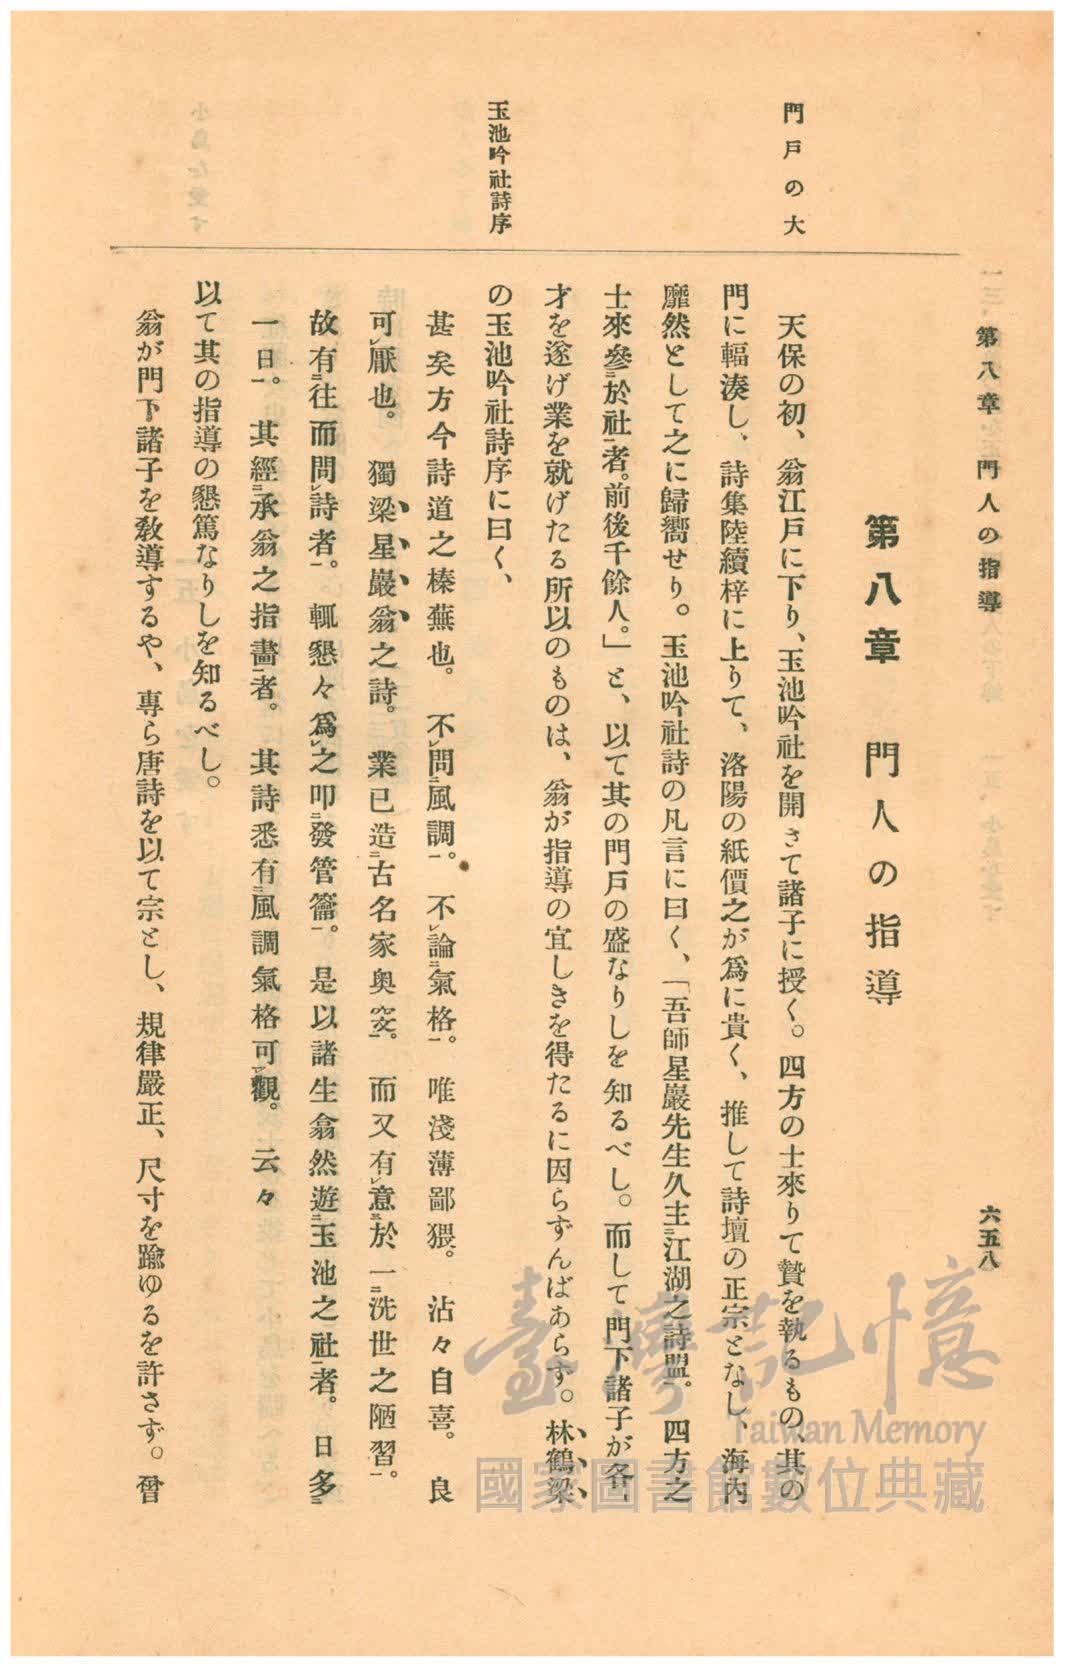 第八章　門人の指導
六五八
第八章　門人の指導
門戸の大
天保の初、翁江戸に下り、玉池吟社を開きて諸子に授く。四方の士來りて贄を執るもの、其の
門に輻湊し、詩集陸續梓に上りて、洛陽の紙價之が爲に貴く、推して詩壇の正宗となし、海内
靡然として之に歸嚮せり。玉池吟社詩の凡言に曰く、「吾師星巖先生久主二江湖之詩盟一。四方之
士來參二於社一者。前後千餘人。」と、以て其の門戸の盛なりしを知るべし。而して門下諸子が各〻
才を遂げ業を就げたる所以のものは、翁が指導の宜しきを得たるに因らずんばあらず。林鶴梁
玉池吟社詩序
の玉池吟社詩序に曰く、
甚矣方今詩道之榛蕪也。不レ問二風調一。不レ論二氣格一。唯淺薄鄙猥。沾々自喜。良
可レ厭也。獨梁星巖翁之詩。業已造二古名家奥窔一。而又有レ意三於一二洗世之陋習一。
故有二往而問レ詩者一。輒懇々爲レ之叩二發管籥一。是以諸生翕然遊二玉池之社一者。日多二
一日一。其經二承翁之指畵一者。其詩悉有二風調氣格可一レ觀。云々
以て其の指導の懇篤なりしを知るべし。
翁が門下諸子を敎導するや、專ら唐詩を以て宗とし、規律嚴正、尺寸を踰ゆるを許さず。曾
臺灣記憶
Taiwan Memory
國家圖書館數位典藏